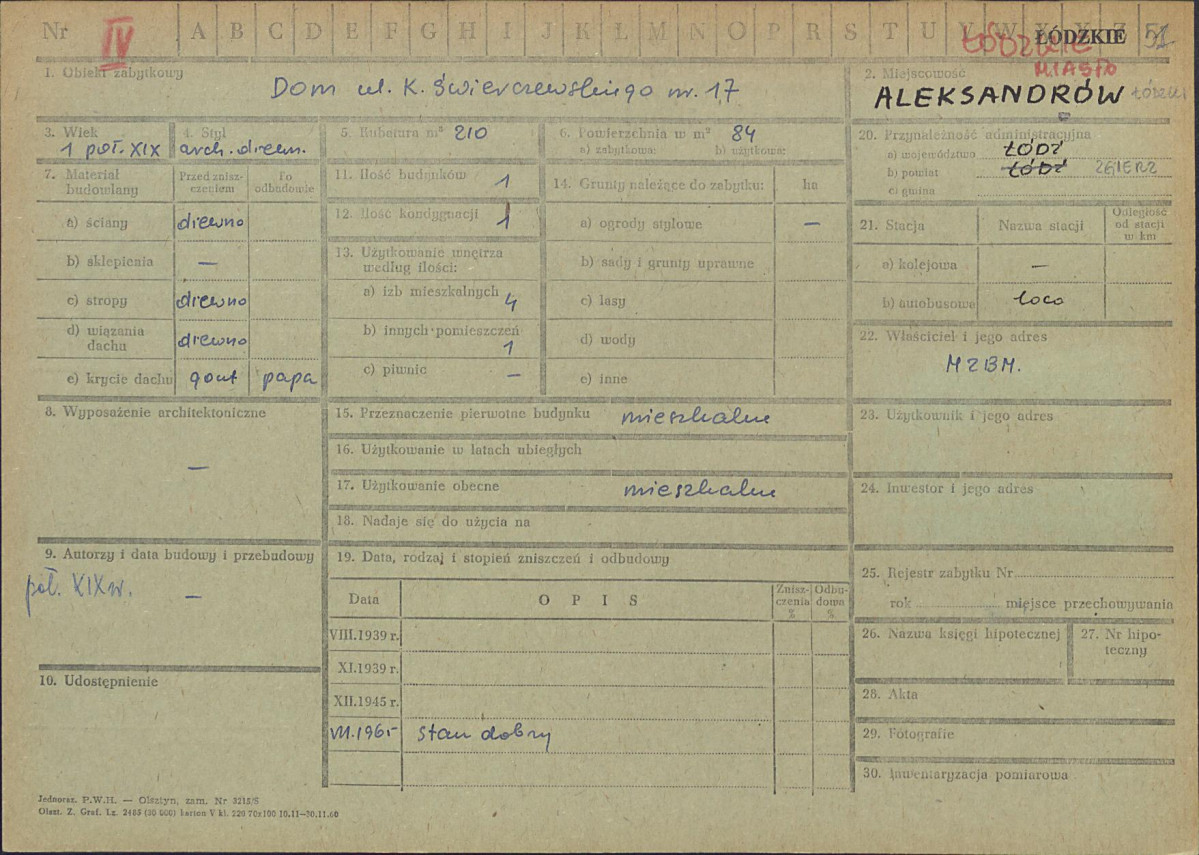 Nr IV A B C D E F G H I J K L Ł M N O P R S T U V W X Y Z ŁÓDZKIE 51
ŁÓDZKIE
MIASTO
1. Obiekt zabytkowy
Dom ul. K. Świerczewskiego nr. 17
2. Miejscowość
ALEKSANDRÓW ŁÓDZKI
3. Wiek
1 poł. XIX
4. Styl
arch. drewn.
5. Kubatura m³ 210
6. Powierzchnia w m² 84
a) zabytkowa: b) użytkowa:
7. Materiał budowlany
Przed zniszczeniem
Po odbudowie
a) ściany drewno
b) sklepienia —
c) stropy drewno
d) wiązania dachu drewno
e) krycie dachu gont papa
8. Wyposażenie architektoniczne
—
9. Autorzy i data budowy i przebudowy
poł. XIX w. —
10. Udostępnienie
11. Ilość budynków 1
12. Ilość kondygnacji 1
13. Użytkowanie wnętrza według ilości:
a) izb mieszkalnych 4
b) innych pomieszczeń 1
c) piwnic —
14. Grunty należące do zabytku: ha
a) ogrody stylowe —
b) sady i grunty uprawne
c) lasy
d) wody
e) inne
15. Przeznaczenie pierwotne budynku mieszkalne
16. Użytkowanie w latach ubiegłych
17. Użytkowanie obecne mieszkalne
18. Nadaje się do użycia na
19. Data, rodzaj i stopień zniszczeń i odbudowy
Data O P I S Zniszczenia % Odbudowa %
VIII.1939 r.
XI.1939 r.
XII.1945 r.
VII.1965 stan dobry
20. Przynależność administracyjna
a) województwo ŁÓDŹ
b) powiat ŁÓDŹ ZGIERZ
c) gmina
21. Stacja Nazwa stacji Odległość od stacji w km
a) kolejowa —
b) autobusowa loco
22. Właściciel i jego adres
MZBM.
23. Użytkownik i jego adres
24. Inwestor i jego adres
25. Rejestr zabytku Nr
rok miejsce przechowywania
26. Nazwa księgi hipotecznej
27. Nr hipoteczny
28. Akta
29. Fotografie
30. Inwentaryzacja pomiarowa
Jednoraz. P.W.H. — Olsztyn, zam. Nr 3215/S
Olszt. Z. Graf. Lz. 2485 (30 000) karton V kl. 220 70x100 10.11—30.11.60